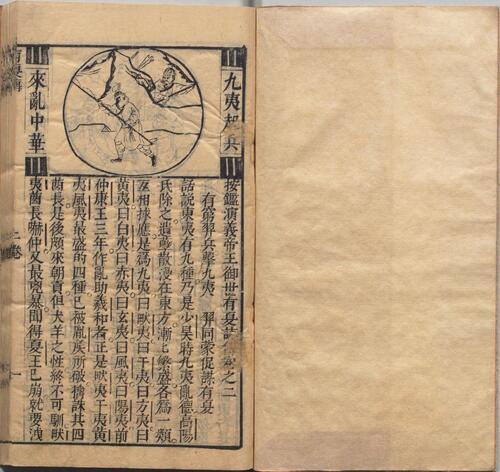 九夷起兵
來亂中華
按鑑演義帝王御世有夏誌傳卷之二
有窮羿兵擊九夷　羿同蒙促謀有夏
話說東夷有九種乃是少昊時九夷亂德高陽
氏除之遺孽散漫在東方漸上繁盛各爲一類
互相捄應是爲九夷曰畎夷曰干夷曰方夷曰
黃夷曰白夷曰赤夷曰玄夷曰風夷曰陽夷前
仲康王三年作亂助羲和者正是畎夷干夷黃
夷風夷最盛的四種已被胤矦所破擒誅其四
酋長是後頗來朝貢但犬羊之性終不可馴畎
夷酋長嚇仲又最兇暴聞得夏王已崩就要洩
二卷
一